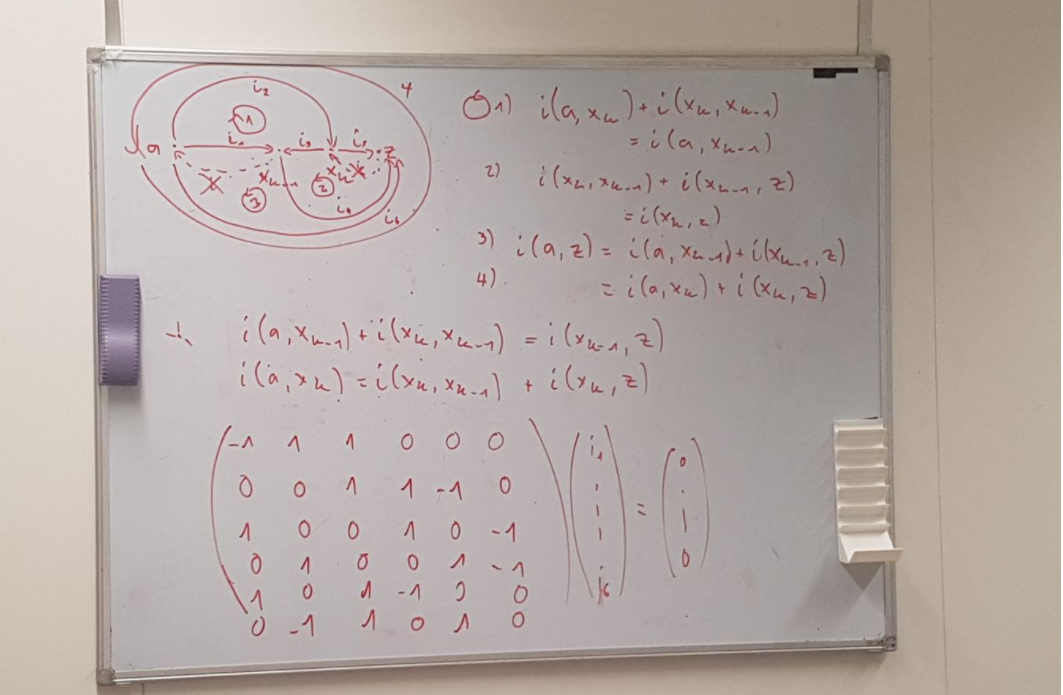 i₂ 4
1
a i₁ i₃ i₅ z
x xₖ₋₁ xₖ x
3 2 i₄ i₆
1) i(a, xₖ) + i(xₖ, xₖ₋₁)
= i(a, xₖ₋₁)
2) i(xₖ, xₖ₋₁) + i(xₖ₋₁, z)
= i(xₖ, z)
3) i(a, z) = i(a, xₖ₋₁) + i(xₖ₋₁, z)
4) = i(a, xₖ) + i(xₖ, z)
i(a, xₖ₋₁) + i(xₖ, xₖ₋₁) = i(xₖ₋₁, z)
i(a, xₖ) = i(xₖ, xₖ₋₁) + i(xₖ, z)
-1 1 1 0 0 0 i₁ 0
0 0 1 1 -1 0
1 0 0 1 0 -1 =
0 1 0 0 1 -1 0
1 0 1 -1 0 0 i₆
0 -1 1 0 1 0